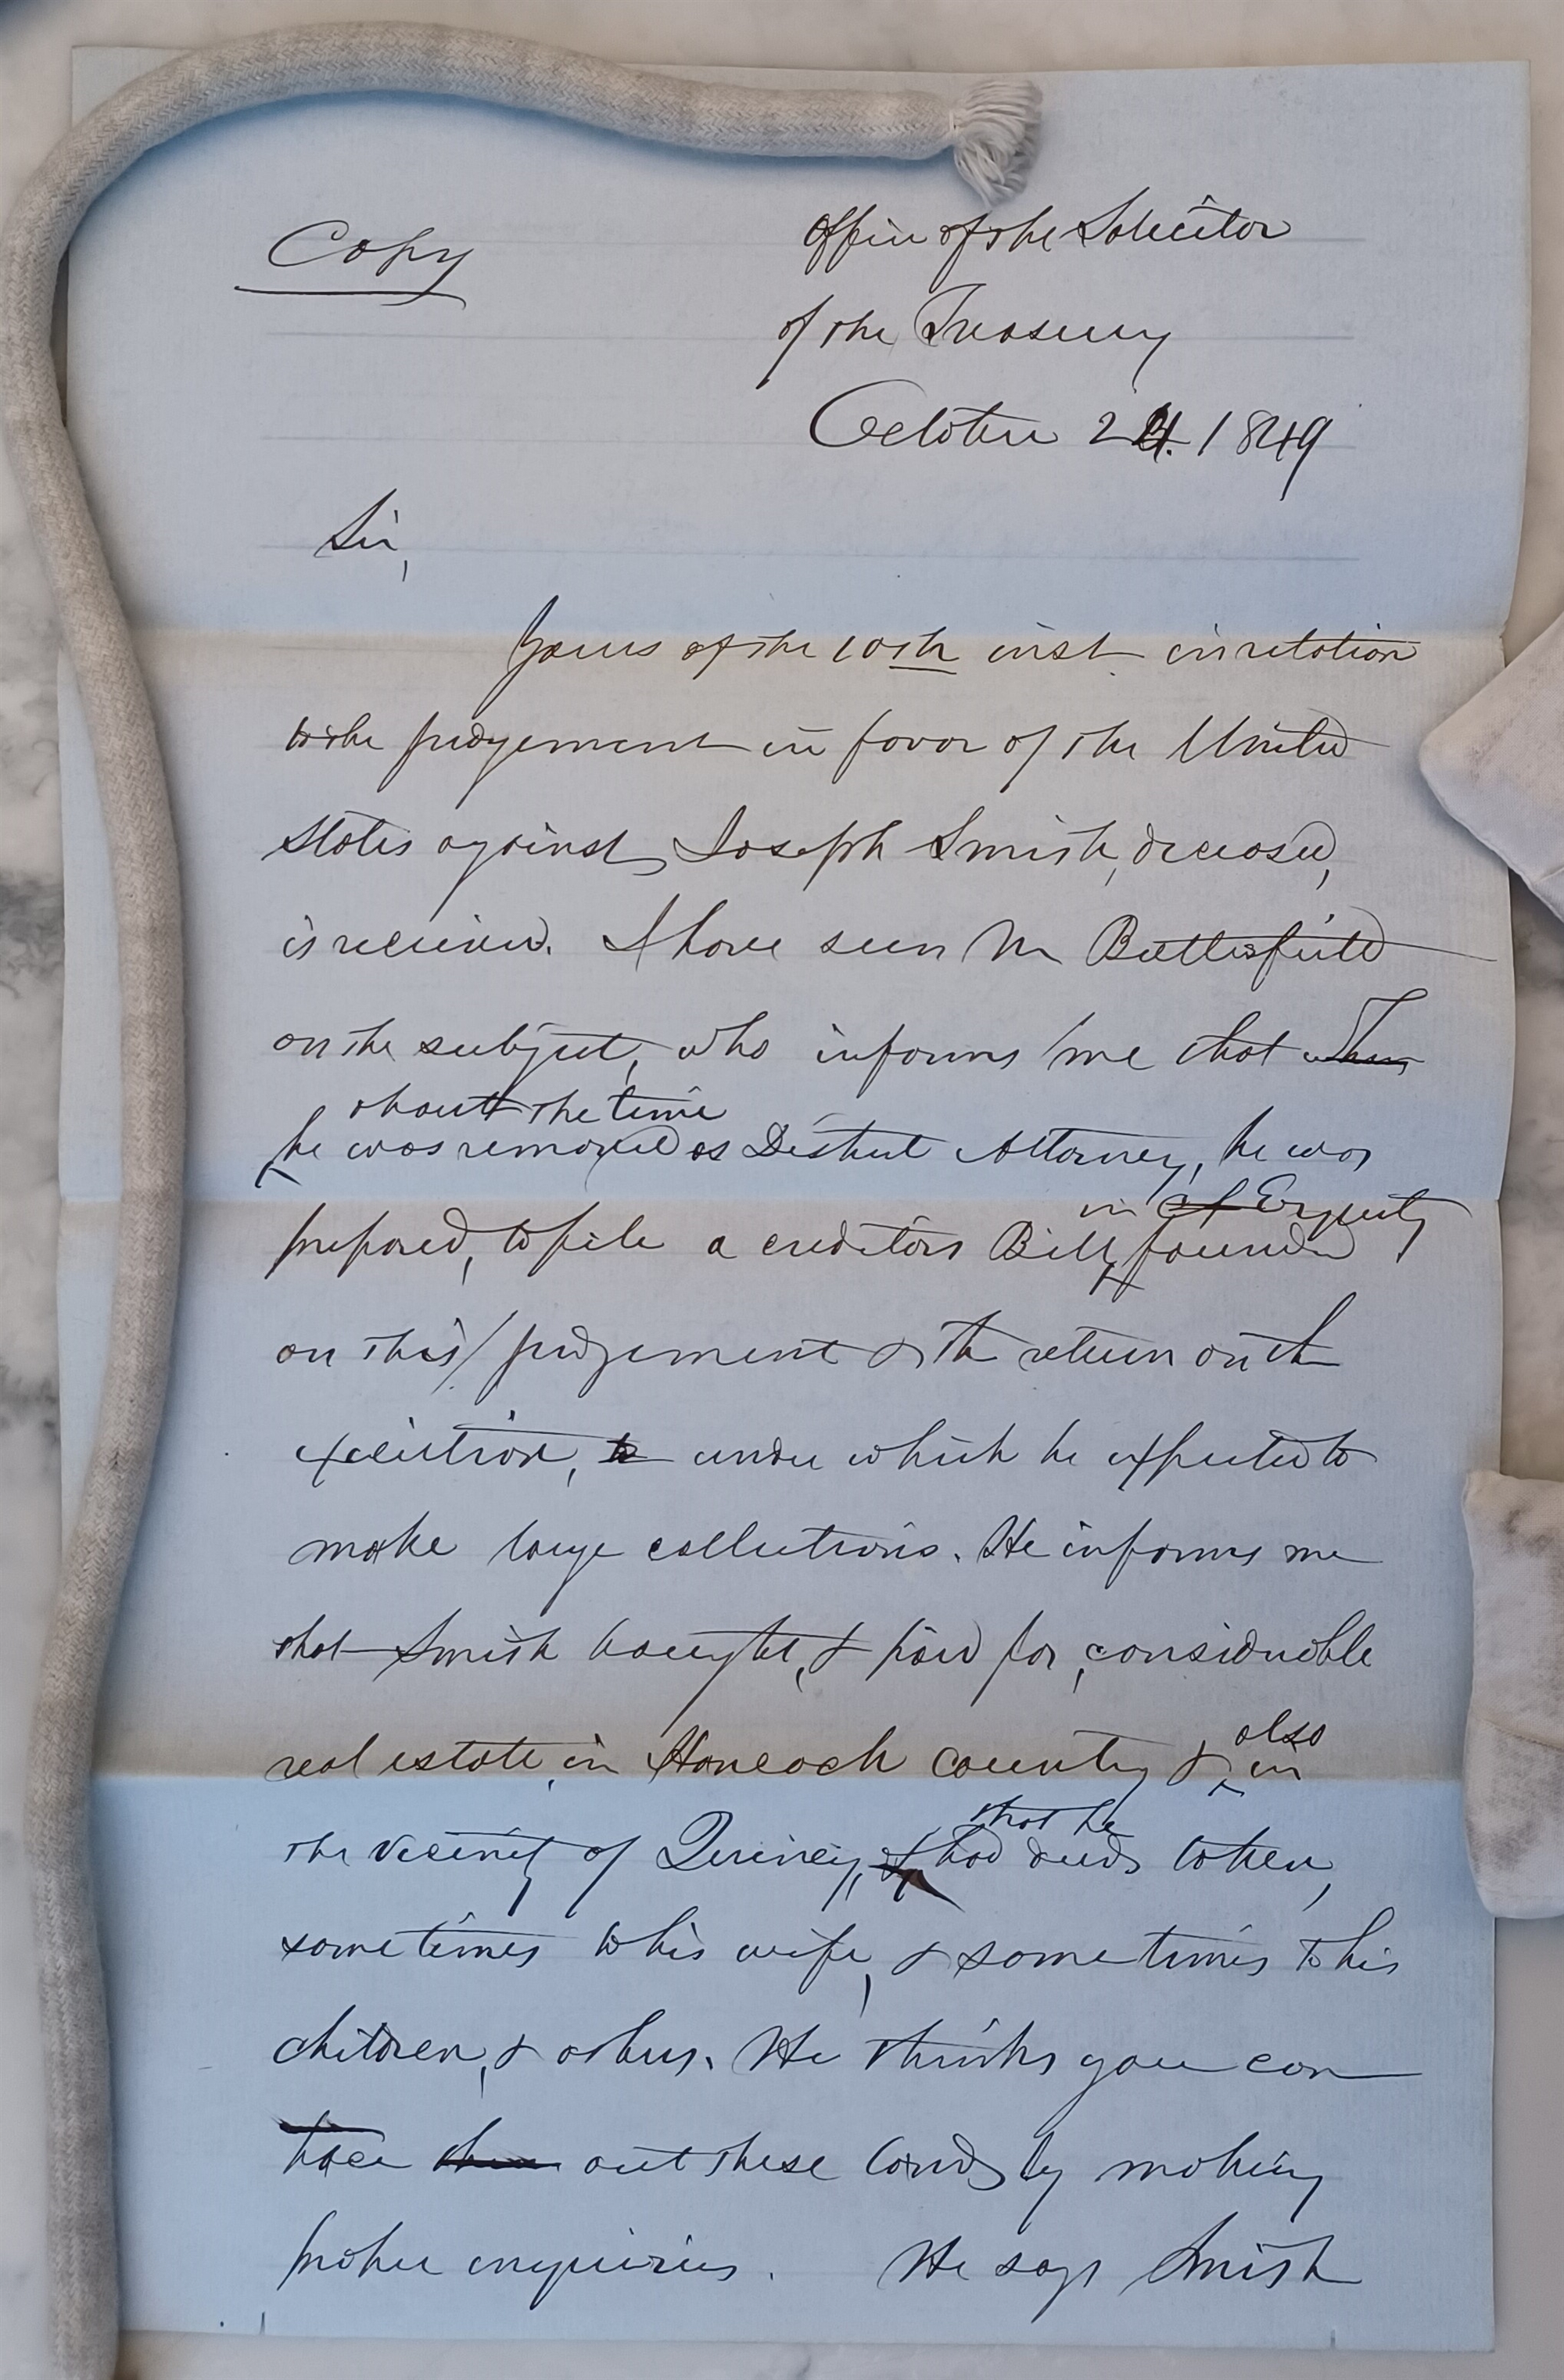 Copy
Office of the Solicitor
of the Treasury
October 24. 1849
Sir,
Yours of the 10th inst. in relation
to the judgement in favor of the United
States against Joseph Smith, deceased,
is received. I have seen Mr Butterfield
on the subject, who informs me that when
about the time
he was removed as District Attorney, he was
in of Equity
prepared, to file a creditors Bill, founded
on this judgement & the return on the
execution, to under which he expected to
make large collections. He informs me
that Smith bought, & paid for, considerable
also
real estate, in Hancock county & in
that he
the vicinity of Quincy, & had deeds taken,
sometimes to his wife, & sometimes to his
children, & others. He thinks you can
trace them out these lands by making
proper enquiries. He says Smith